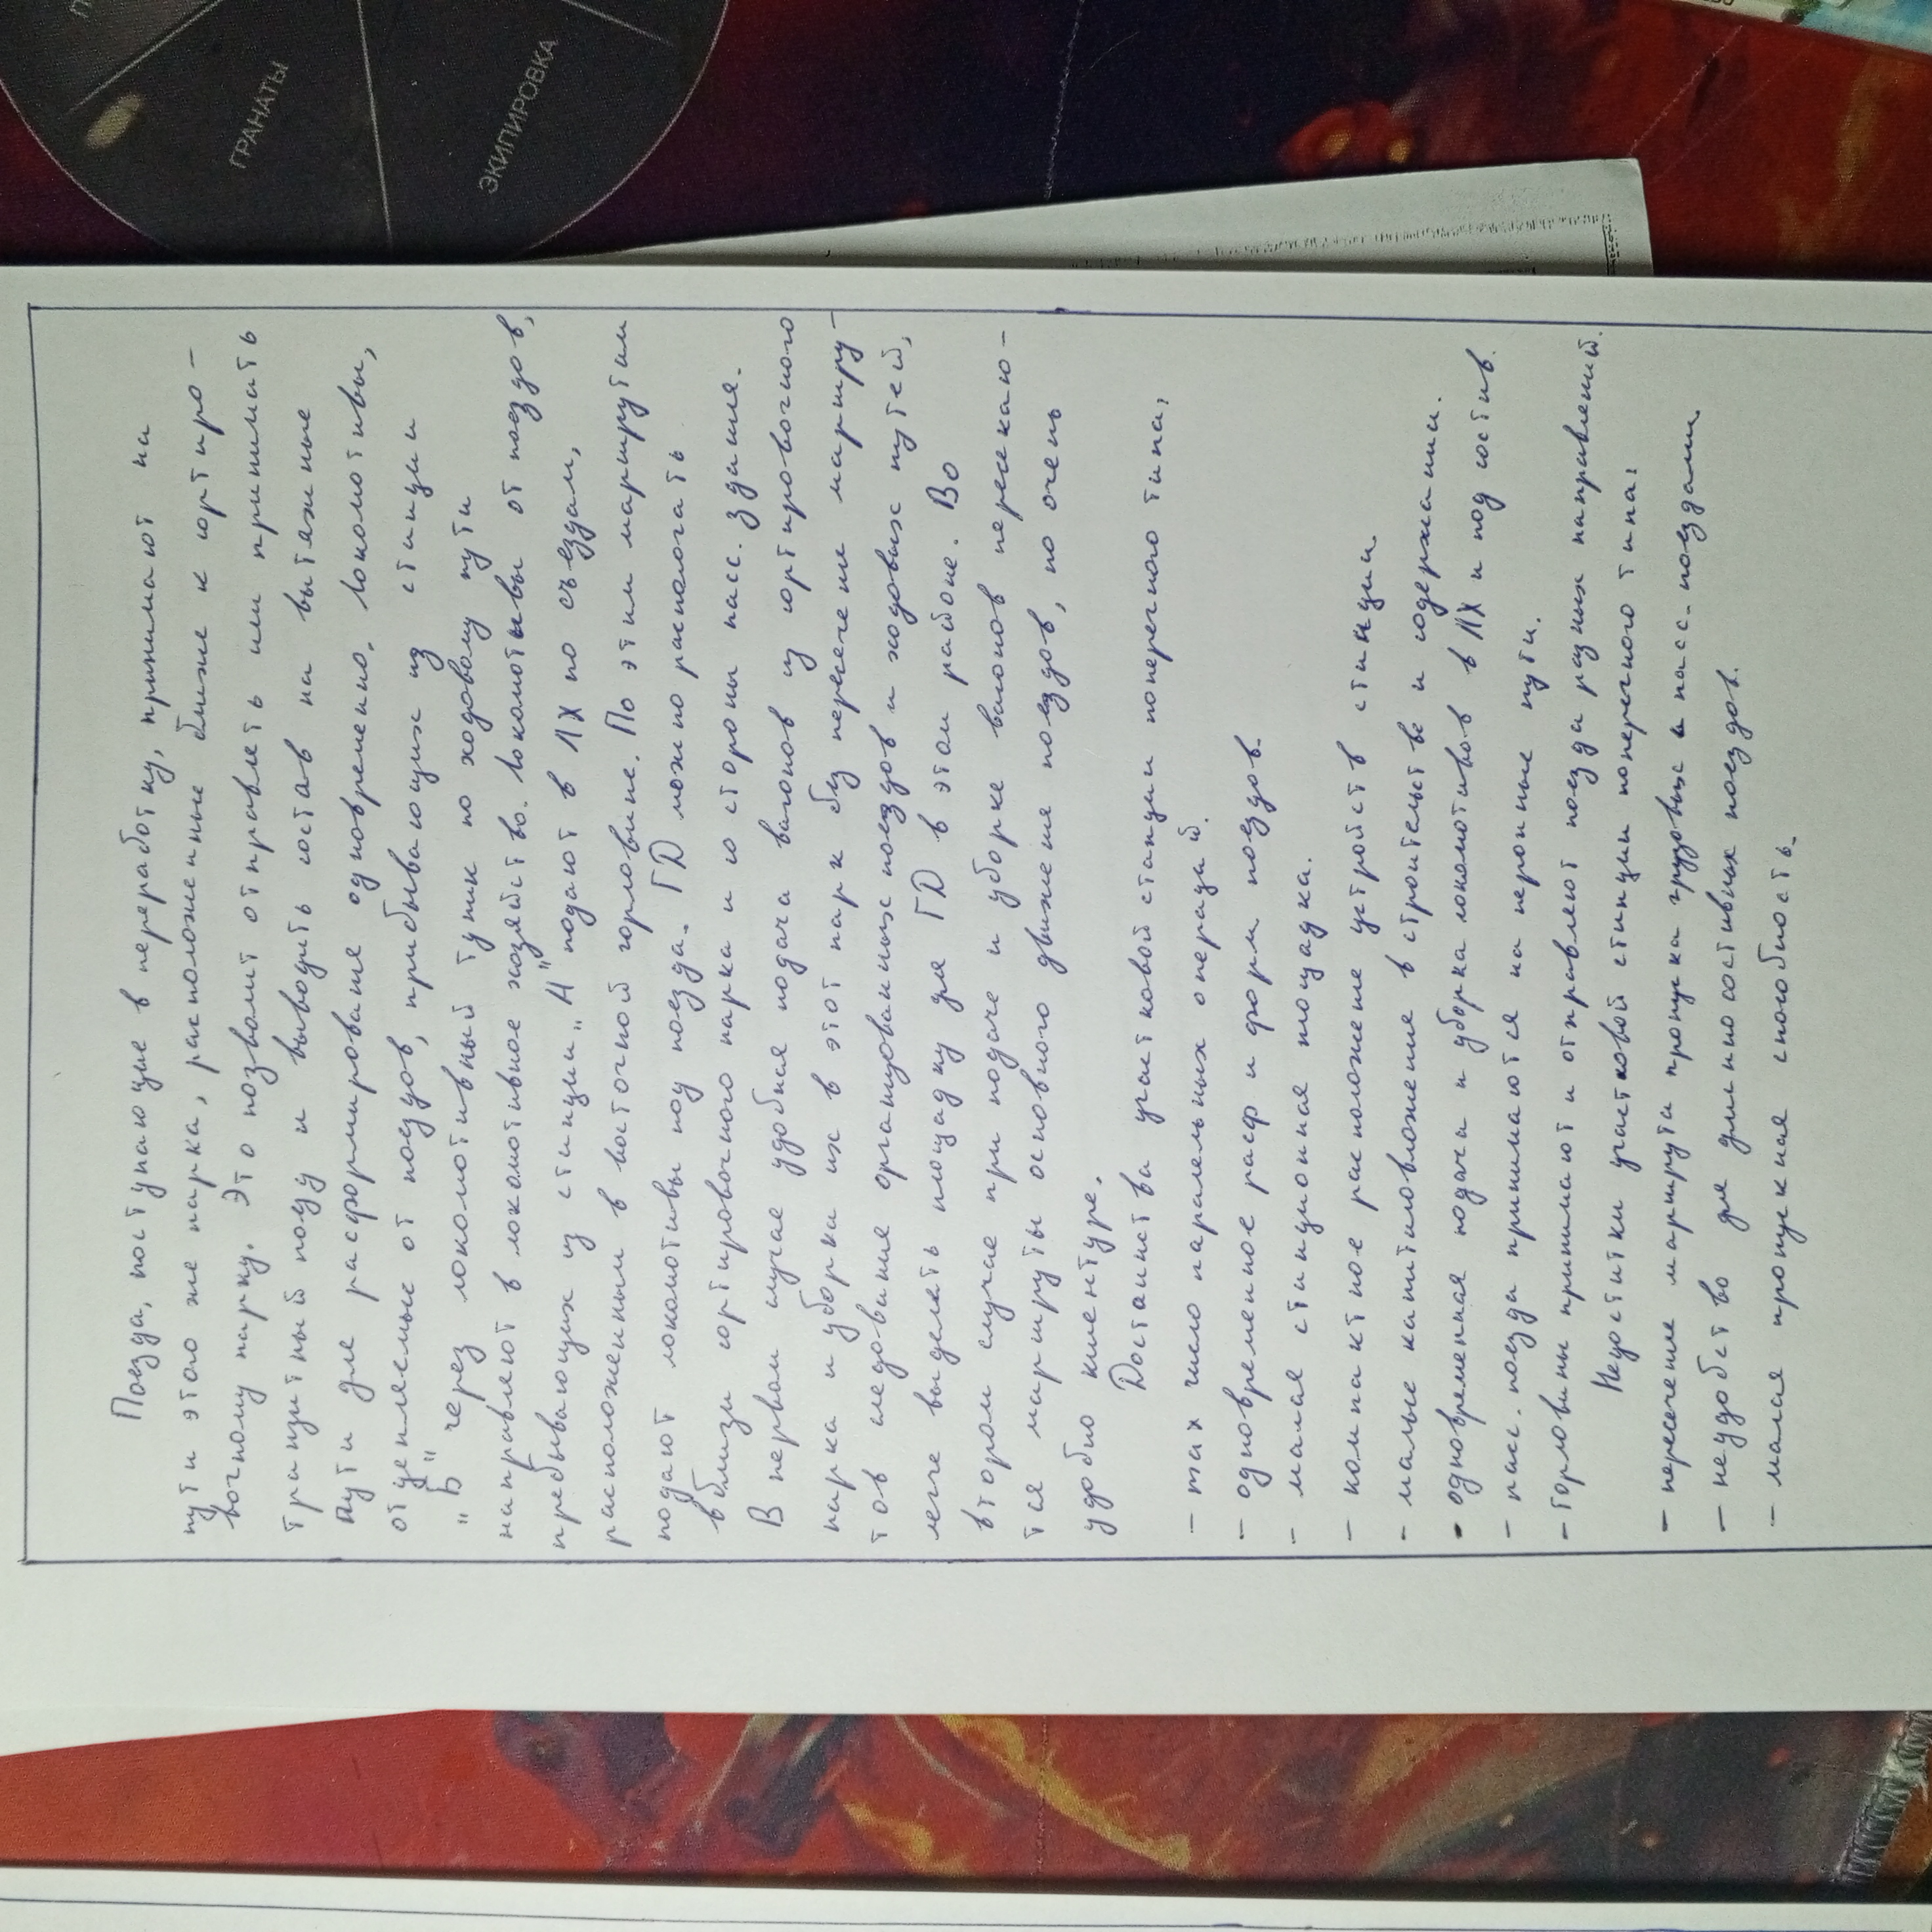 Поезда, поступающие в переработку, принимают на
пути этого же парка, расположенные ближе к сортиро-
вочному парку. Это позволит отправлять или принимать
транзитный поезд и выводить состав на вытяжные
пути для расформирование одновременно. Локомотивы,
отцепляемые от поездов, прибывающих из станции
„Б" через локомотивный тупик по ходовому пути
направляют в локомотивное хозяйство. Локомотивы от поездов,
пребывающих из станции „А" подают в ЛХ по съездам,
расположенным в восточной горловине. По этим маршрутам
подают локомотивы под поезда. ГД можно распологать
вблизи сортировочного парка и со стороны пасс. здания.
В первом случае удобная подача вагонов из сортировочного
парка и уборки их в этот парк без пересечение маршру-
тов следование организованных поездов и ходовых путей,
легче выделять площадку для ГД в этом районе. Во
втором случае при подаче и уборке вагонов пересекаю-
тся маршруты основного движение поездов, но очень
удобно клиентуре.
Достоинства участковой станции поперечного типа:
- max число паралельных операций.
- одновременное расф и форм. поездов.
- малая станционная площадка.
- компактное расположение устройств станции
- малые капиталовложение в строительстве и содержании.
- одновременная подача и уборка локомотивов в ЛХ и под состав.
- пасс. поезда принимаются на перонные пути.
- Горловины принимают и отправляют поезда разных направлений.
Недостатки участковой станции поперечного типа:
- пересечение маршрута пропуска грузовых с пасс. поездами
- неудобство для длинносоставных поездов.
- малая пропускная способность.
ГРАНАТЫ
ЭКИПИРОВКА